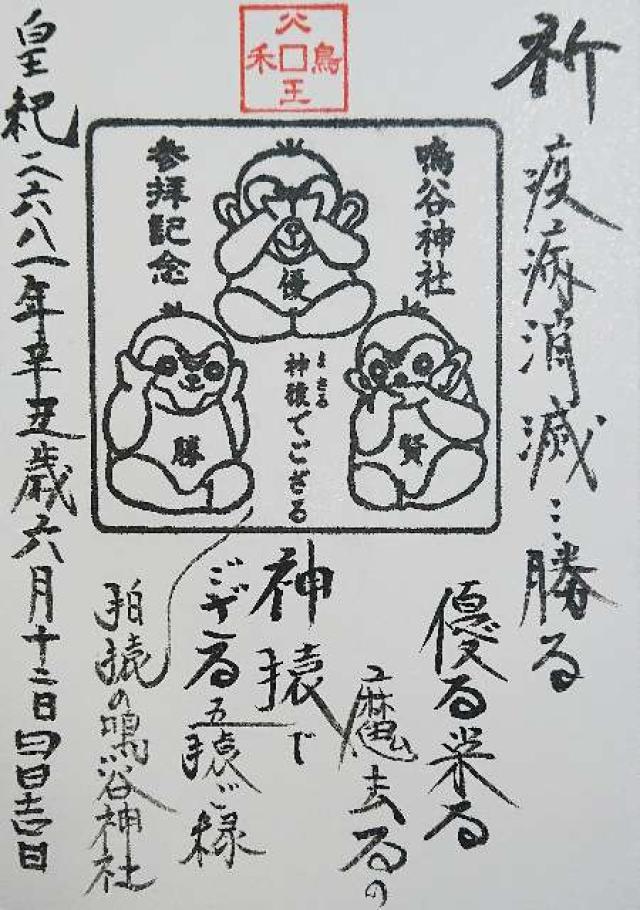 祈
疫病消滅…勝る
優る栄る
魔去るの
神猿で
ござる五猿ご縁
狛猿の鳴谷神社
皇紀二六八一年辛丑歳六月十二日
鳴谷神社
参拝記念
優
賢
勝
まさる
神猿でござる